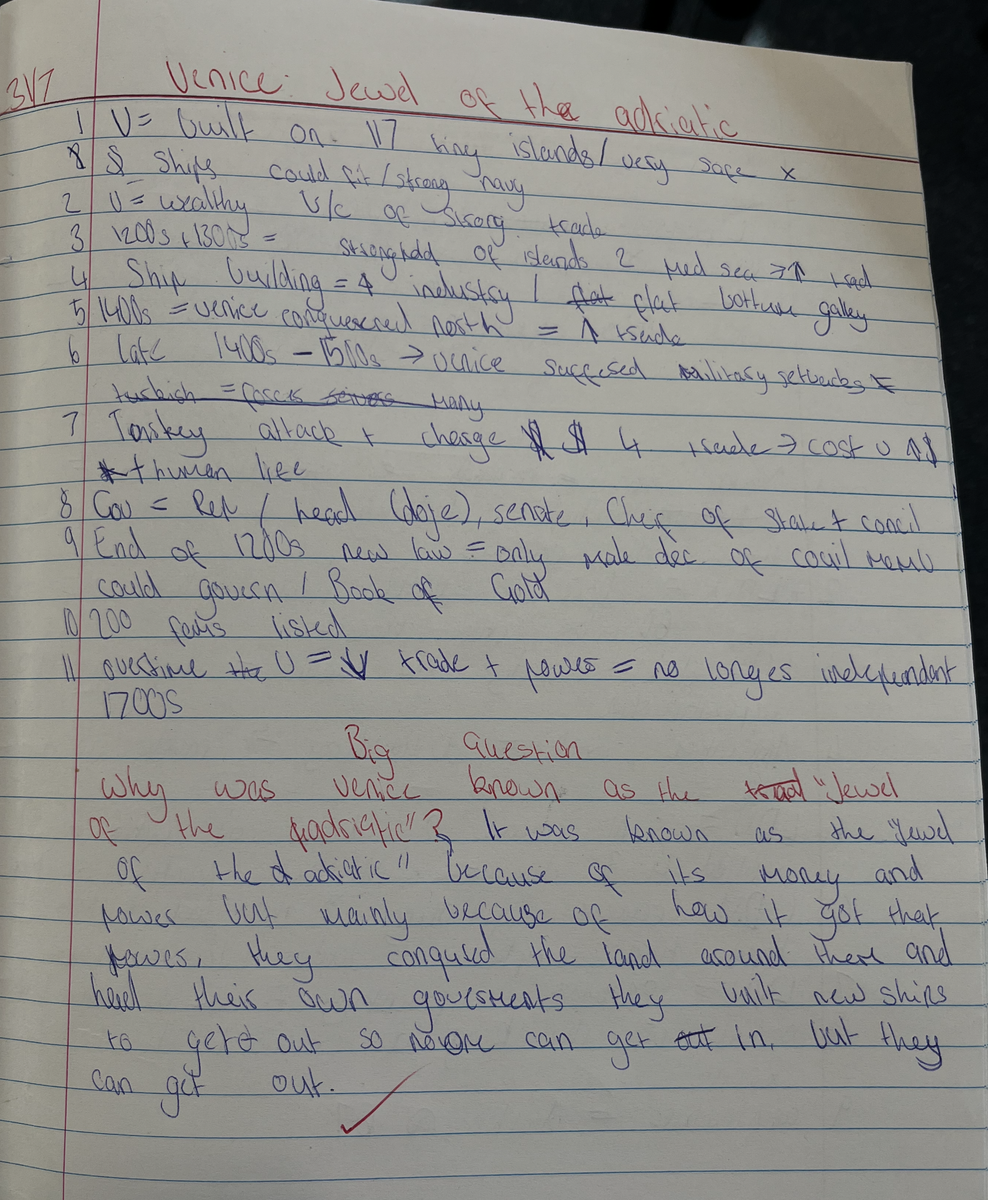 31/7
Venice: Jewel of the adriatic
1 V= built on 117 tiny islands / very safe x
& ships could fit / strong navy
2 V= wealthy b/c of strong trade
3 1200s + 1300s = stronghold of islands 2 Med sea →↑ trad
4 Ship building = ↑ industry / flat flat bottum galley
5 1400s = venice conquered north = ↑ trade
6 Late 1400s – 1510s → venice suffesed military setbacks =
turkish = forces many
7 Tourkey attack + charge $ $ 4 trade → cost v ↑$
+ human life
8 Gov = Rep / head (doje), senate, Cheif of State + concil
9 End of 1200s new law = only male dec. of couil memb
could govern / Book of Gold
10 200 fams listed
11 overtime the V = ↓ trade + power = no longer independant
1700s
Big Question
Why was venice known as the trad "Jewel
of the adriatic"? It was known as the "Jewel
of the adriatic" because of its money and
power but mainly because of how it got that
power, they conqured the land around there and
head their own goverments they built new ships
to get out so noone can get out in, but they
can get out.